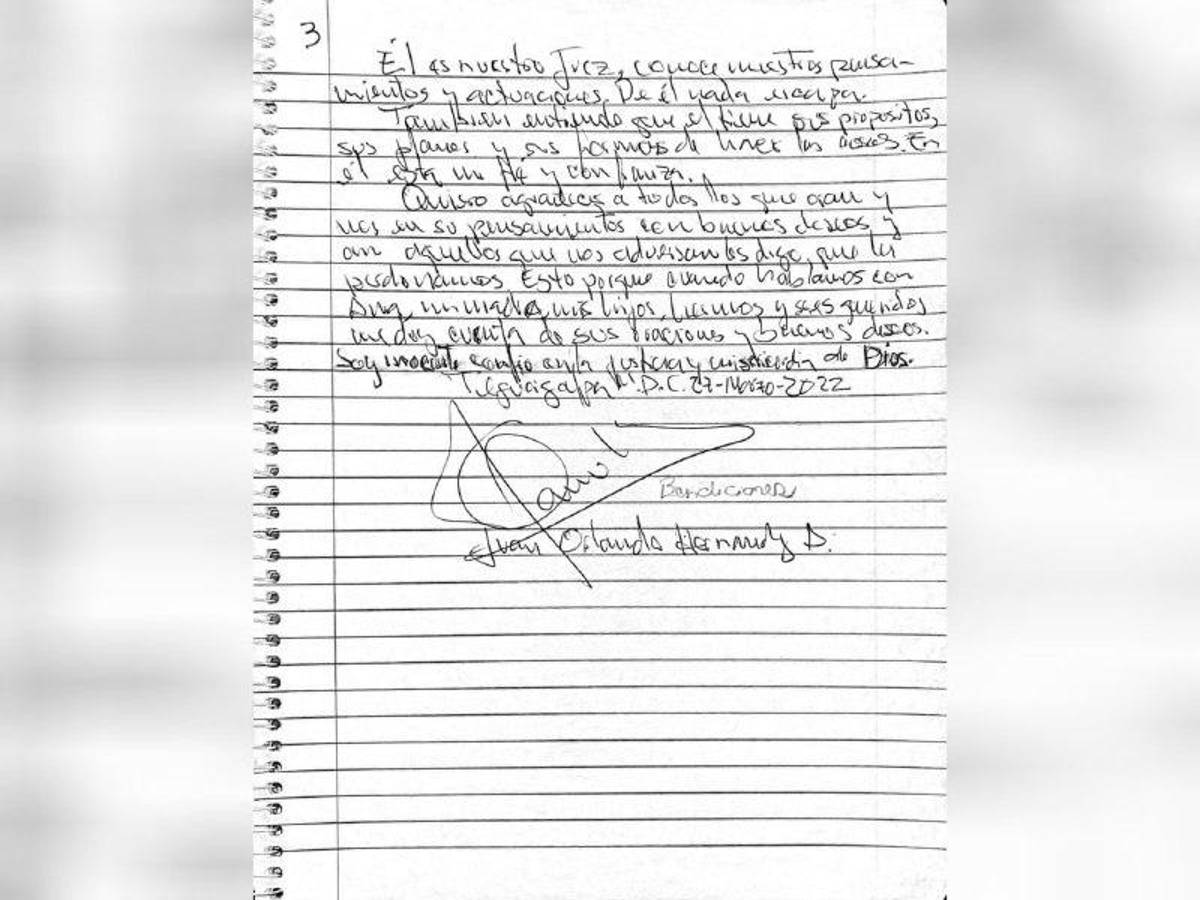 3
Él es nuestro Juez, conoce nuestros pensa-
mientos y actuaciones. De él nada escapa.
También entiendo que el tiene sus propositos,
sus planes y sus formas de hacer las cosas. En
él está mi fé y confianza.
Quiero agradecer a todos los que oran y
nos en su pensamientos con buenos deseos y
a aquellos que nos adversan les digo que les
perdonamos. Esto porque cuando hablamos con
Ana, mi madre, mis hijos, hermanos y seres queridos
me doy cuenta de sus oraciones y buenos deseos.
Soy inocente confio en la justicia y misericordia de Dios.
Tegucigalpa M.D.C. 27-Marzo-2022
Bendiciones
Juan Orlando Hernandez A.